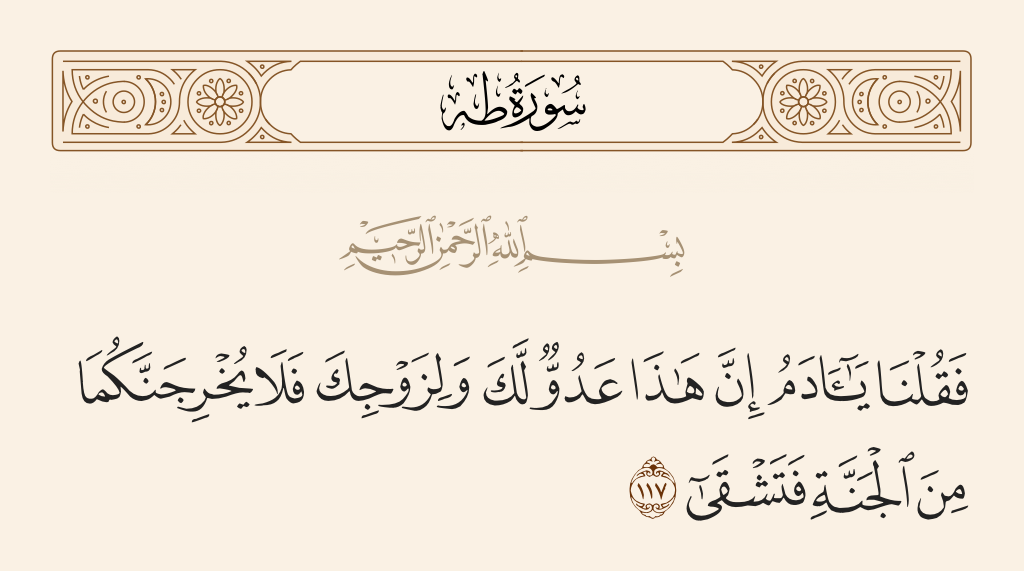 سُورَةُ طه
بِسْمِ ٱللَّهِ ٱلرَّحْمَٰنِ ٱلرَّحِيمِ
فَقُلْنَا يَـٰٓـَٔادَمُ إِنَّ هَـٰذَا عَدُوٌّ لَّكَ وَلِزَوْجِكَ فَلَا يُخْرِجَنَّكُمَا
مِنَ ٱلْجَنَّةِ فَتَشْقَىٰٓ ١١٧